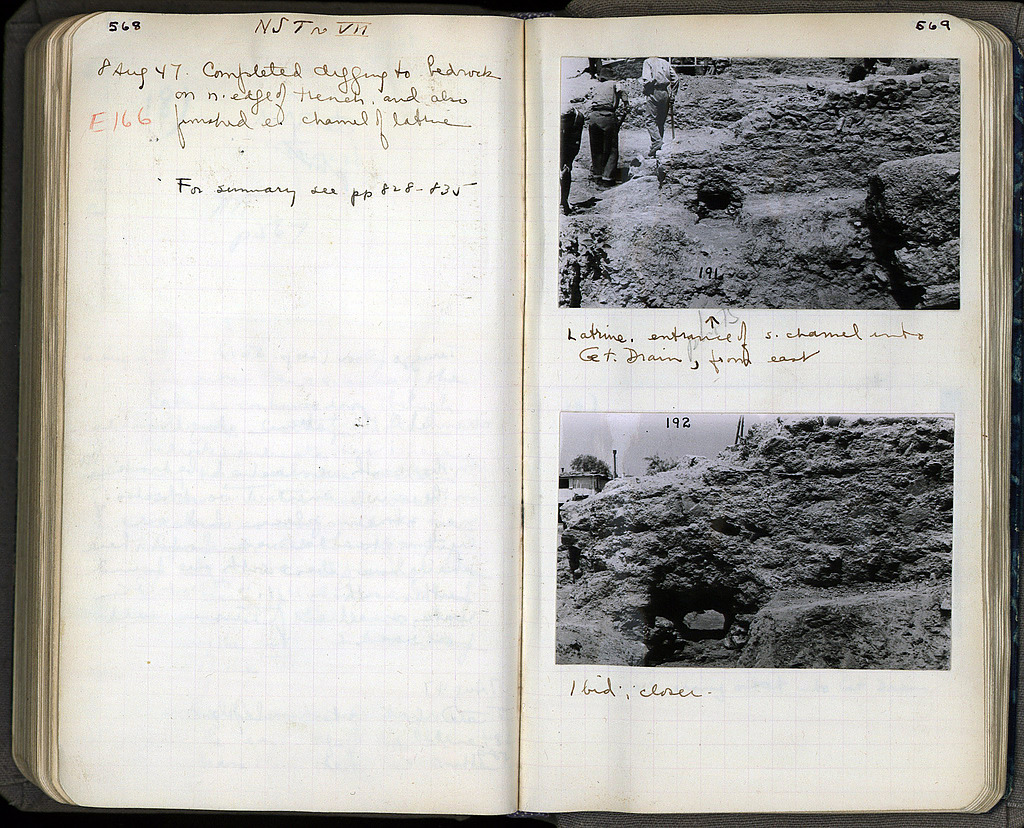 568
NSTr VII
8 Aug 47. Completed digging to bedrock
on n. edge of trench, and also
E166 finished e channel of latrine
For summary see pp 828-835
569
191
Latrine, entrance of s. channel into
Gt. Drain, from east
192
Ibid., closer.